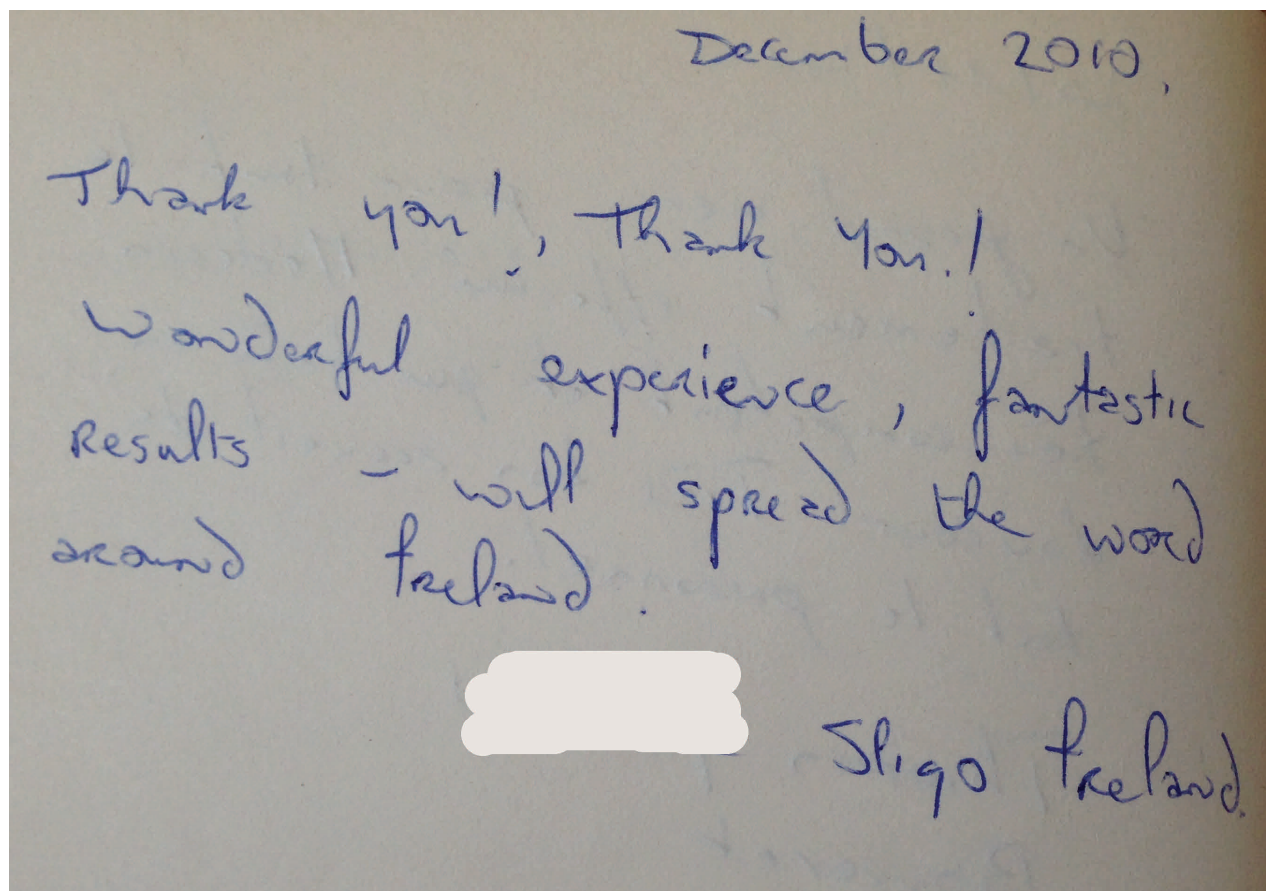 December 2010.
Thank you!, Thank You.!
Wonderful experience, fantastic
Results - will spread the word
around Ireland.
Sligo Ireland.